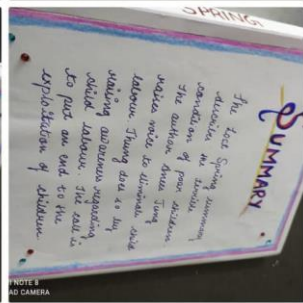 SPRING
SUMMARY
The Lost Spring summary
describes the terrible
condition of poor children
The author Anees Jung
raises voice to eliminate child
labour. Jhung does so by
raising awareness regarding
child labour. The call is
to put an end to the
exploitation of children
NOTE 8
AD CAMERA